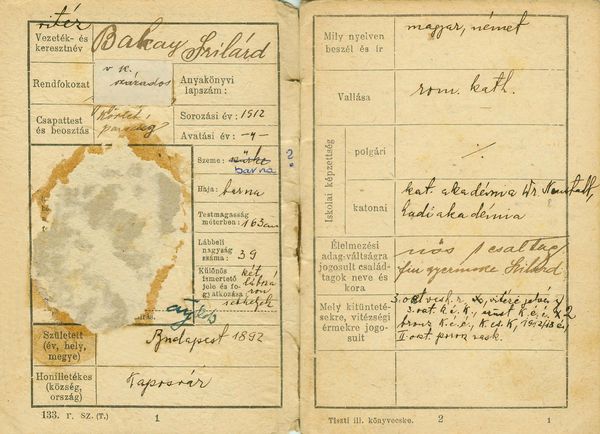 vitéz
Vezeték- és
keresztnév
Bakay Szilárd
Rendfokozat
v. k.
százados
Anyakönyvi
lapszám:
Csapattest
és beosztás
Sorozási év: 1912
Avatási év: -"-
Szeme: szürke ?
barna
Haja: barna
Testmagasság
méterben: 163 cm
Lábbeli
nagyság
száma: 39
Különös
ismertető
jele és fo-
gyatkozása:
két
lábszá
ron
sebhelyek
Született
(év, hely,
megye)
Budapest 1892
Honilletékes
(község,
ország)
Kaposvár
133. r. sz. (T.)
1
Mily nyelven
beszél és ír
magyar, német
Vallása
rom. kath.
Iskolai képzettség
polgári
katonai
kat. akadémia Wr. Neustadt,
hadi akadémia
Élelmezési
adag-váltságra
jogosult család-
tagok neve és
kora
nős 1 családtag
fiu gyermeke Szilárd
Mely kitünteté-
sekre, vitézségi
érmekre jogo-
sult
3. oszt. vask. r.
3. oszt. k. é. k.,
bronz K. é. é., K. cs. k., 1912/13 é.
II oszt. porosz vask.
Tiszti ill. könyvecske.
2
1